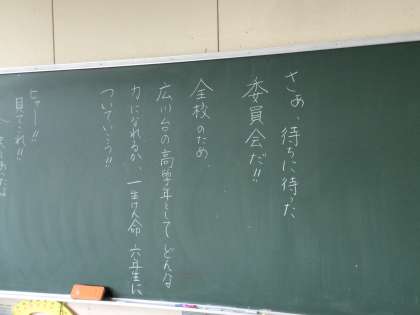 さぁ、待ちに待った
委員会だ!!
全校のため、
広川台の高学年として どんな
力になれるか、一生けん命 六年生に
ついていこう!!
ヒャー!!
見てくれ!!